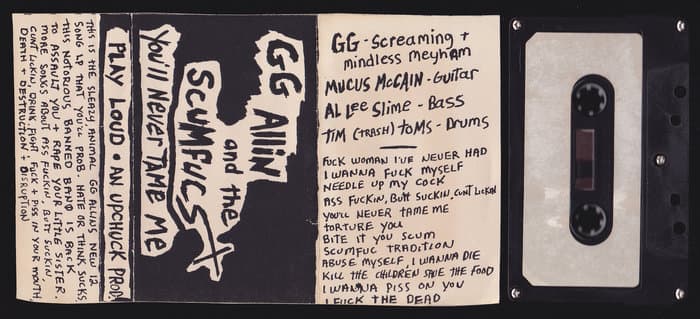 THIS IS THE SLEAZY, ANIMAL GG ALLINS NEW 12
SONG LP THAT YOU'LL PROB. HATE OR THINK SUCKS.
THIS NOTORIOUS BANNED BAND IS BACK
TO ASSAULT YOU + RAPE YOUR LITTLE SISTER.
MORE SONGS ABOUT ASS FUCKIN, BUTT SUCKIN,
CUNT LICKIN, DRINK, FIGHT FUCK + PISS IN YOUR MOUTH.
DEATH + DESTRUCTION + DISRUPTION
PLAY LOUD • AN UPCHUCK PROD.
GG Allin
and the
SCUMFUCS
You'll Never TAME ME
GG - Screaming +
mindless meyham
MUCUS McCAIN - Guitar
AL Lee Slime - Bass
TIM (TRASH) TOMS - DRUMS
FUCK WOMAN I'VE NEVER HAD
I WANNA FUCK MYSELF
NEEDLE UP MY COCK
ASS FUCKIN, BUTT SUCKIN, CUNT LICKIN
YOU'LL NEVER TAME ME
TORTURE YOU
BITE IT YOU SCUM
SCUMFUC TRADITION
ABUSE MYSELF, I WANNA DIE
KILL THE CHILDREN SAVE THE FOOD
I WANNA PISS ON YOU
I FUCK THE DEAD